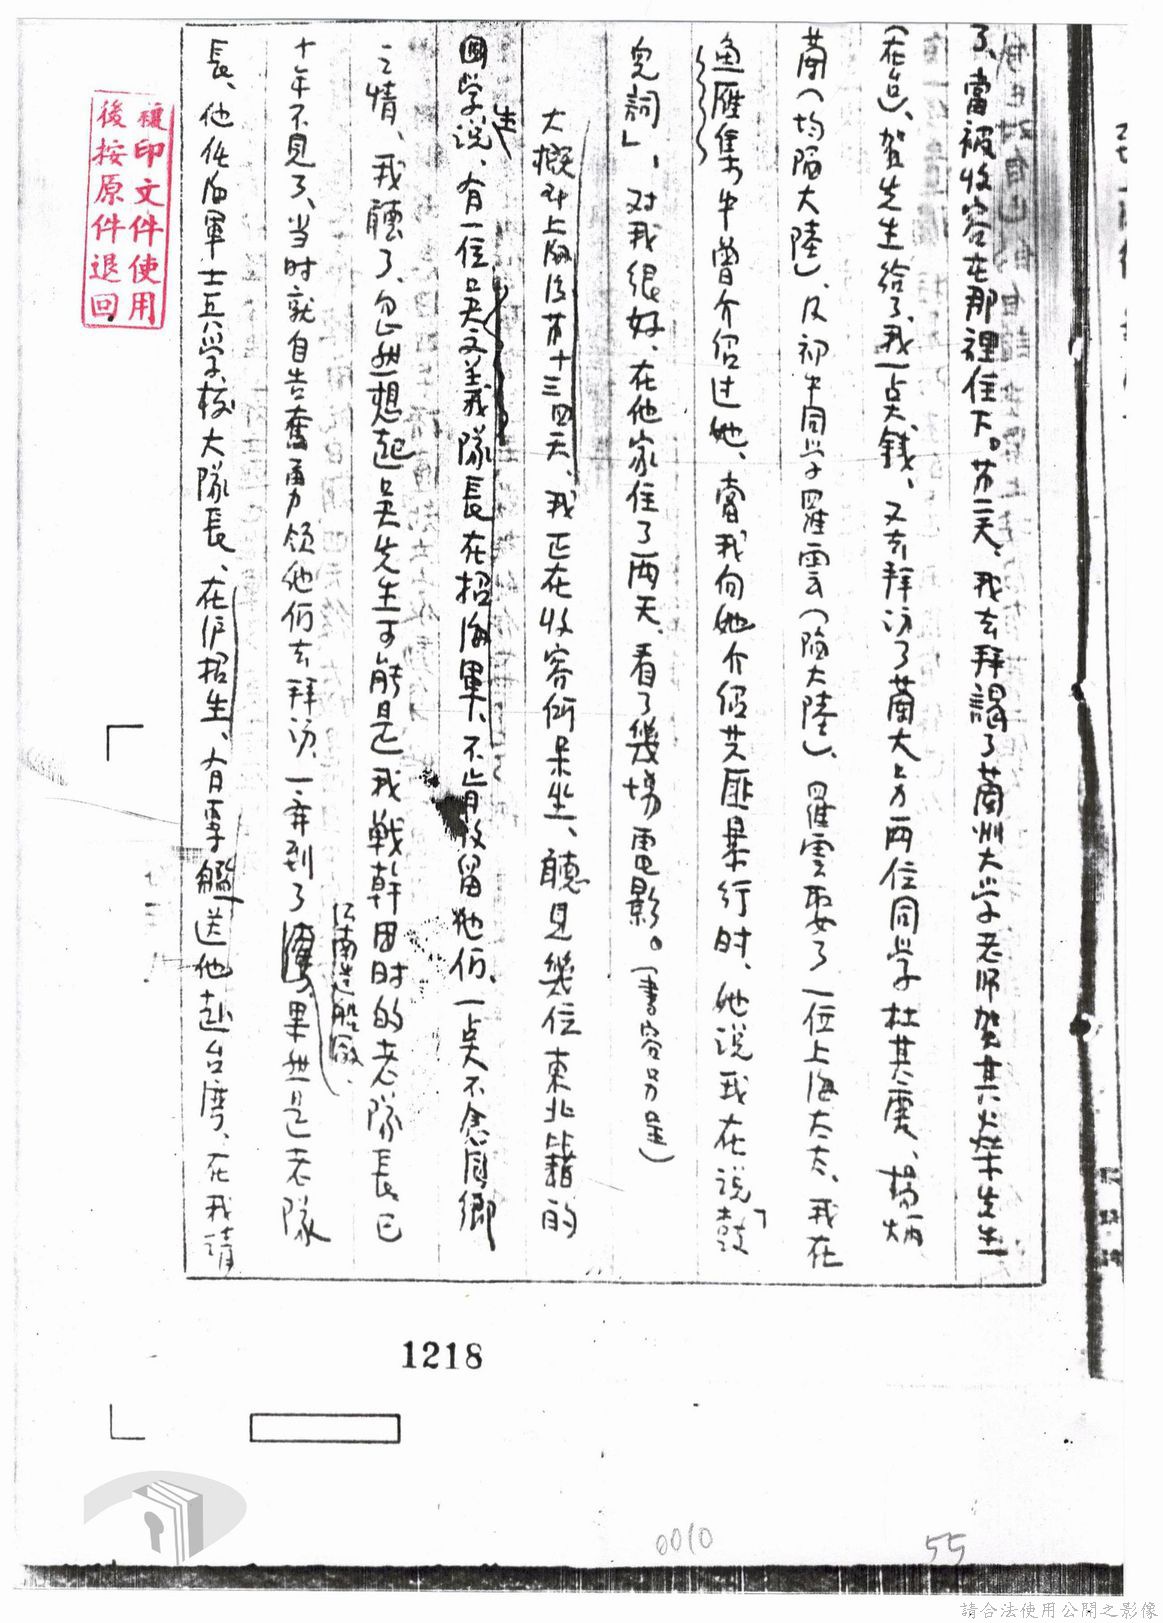 了、當被收容在那裡住下。第二天、我去拜謁了蘭州大学老师贺其燊先生
(在台)、贺先生给了我一点大錢、又去拜访了蘭大上方两位同学杜其震、楊炳
蘭(均陷大陸)、及初中同学羅雲(陷大陸)、羅雲娶了一位上海太太、我在
魚雁集中曾介绍过她、當我向她介绍共匪暴行时、她说我在说「鼓
兒詞」、对我很好、在他家住了两天、看了幾場電影。(書容另呈)
大概到上海後第十三四天、我正在收容所呆坐、聽見幾位東北籍的
学生说、有一位吴文義隊長在招海軍、不肯收留他们、一点不念同鄉
之情、我聽了、忽然想起吴先生可能是我戰幹团时的老隊長已
十年不見了、当时就自告奮勇领他们去拜访、一奔到了江南造船廠、果然是老隊
長、他任海軍士兵学校大隊長、在沪招生、有專艦送他赴台湾、在我請
複印文件使用
後按原件退回
1218
0010
55
請合法使用公開之影像